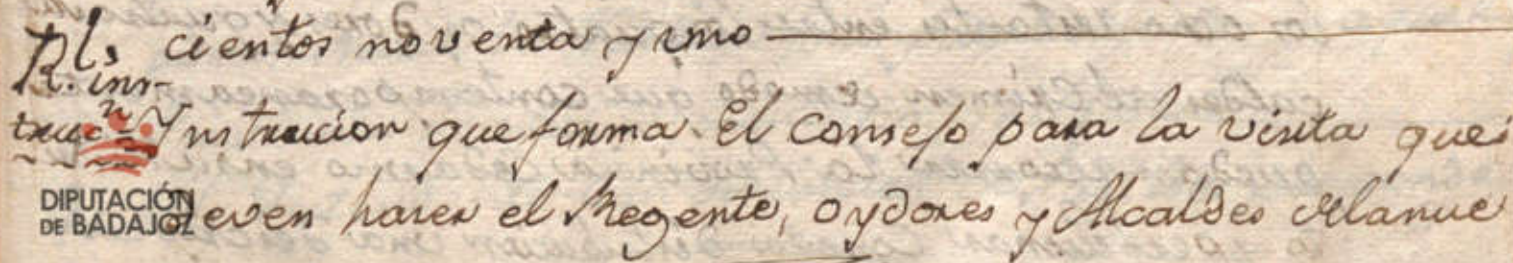 Rl. cientos noventa y uno
R. ins-
trucn Ynstruccion que forma El Consejo para la visita que
DIPUTACIÓN
DE BADAJOZ
deven hacer el Regente, oydores y Alcaldes delanue